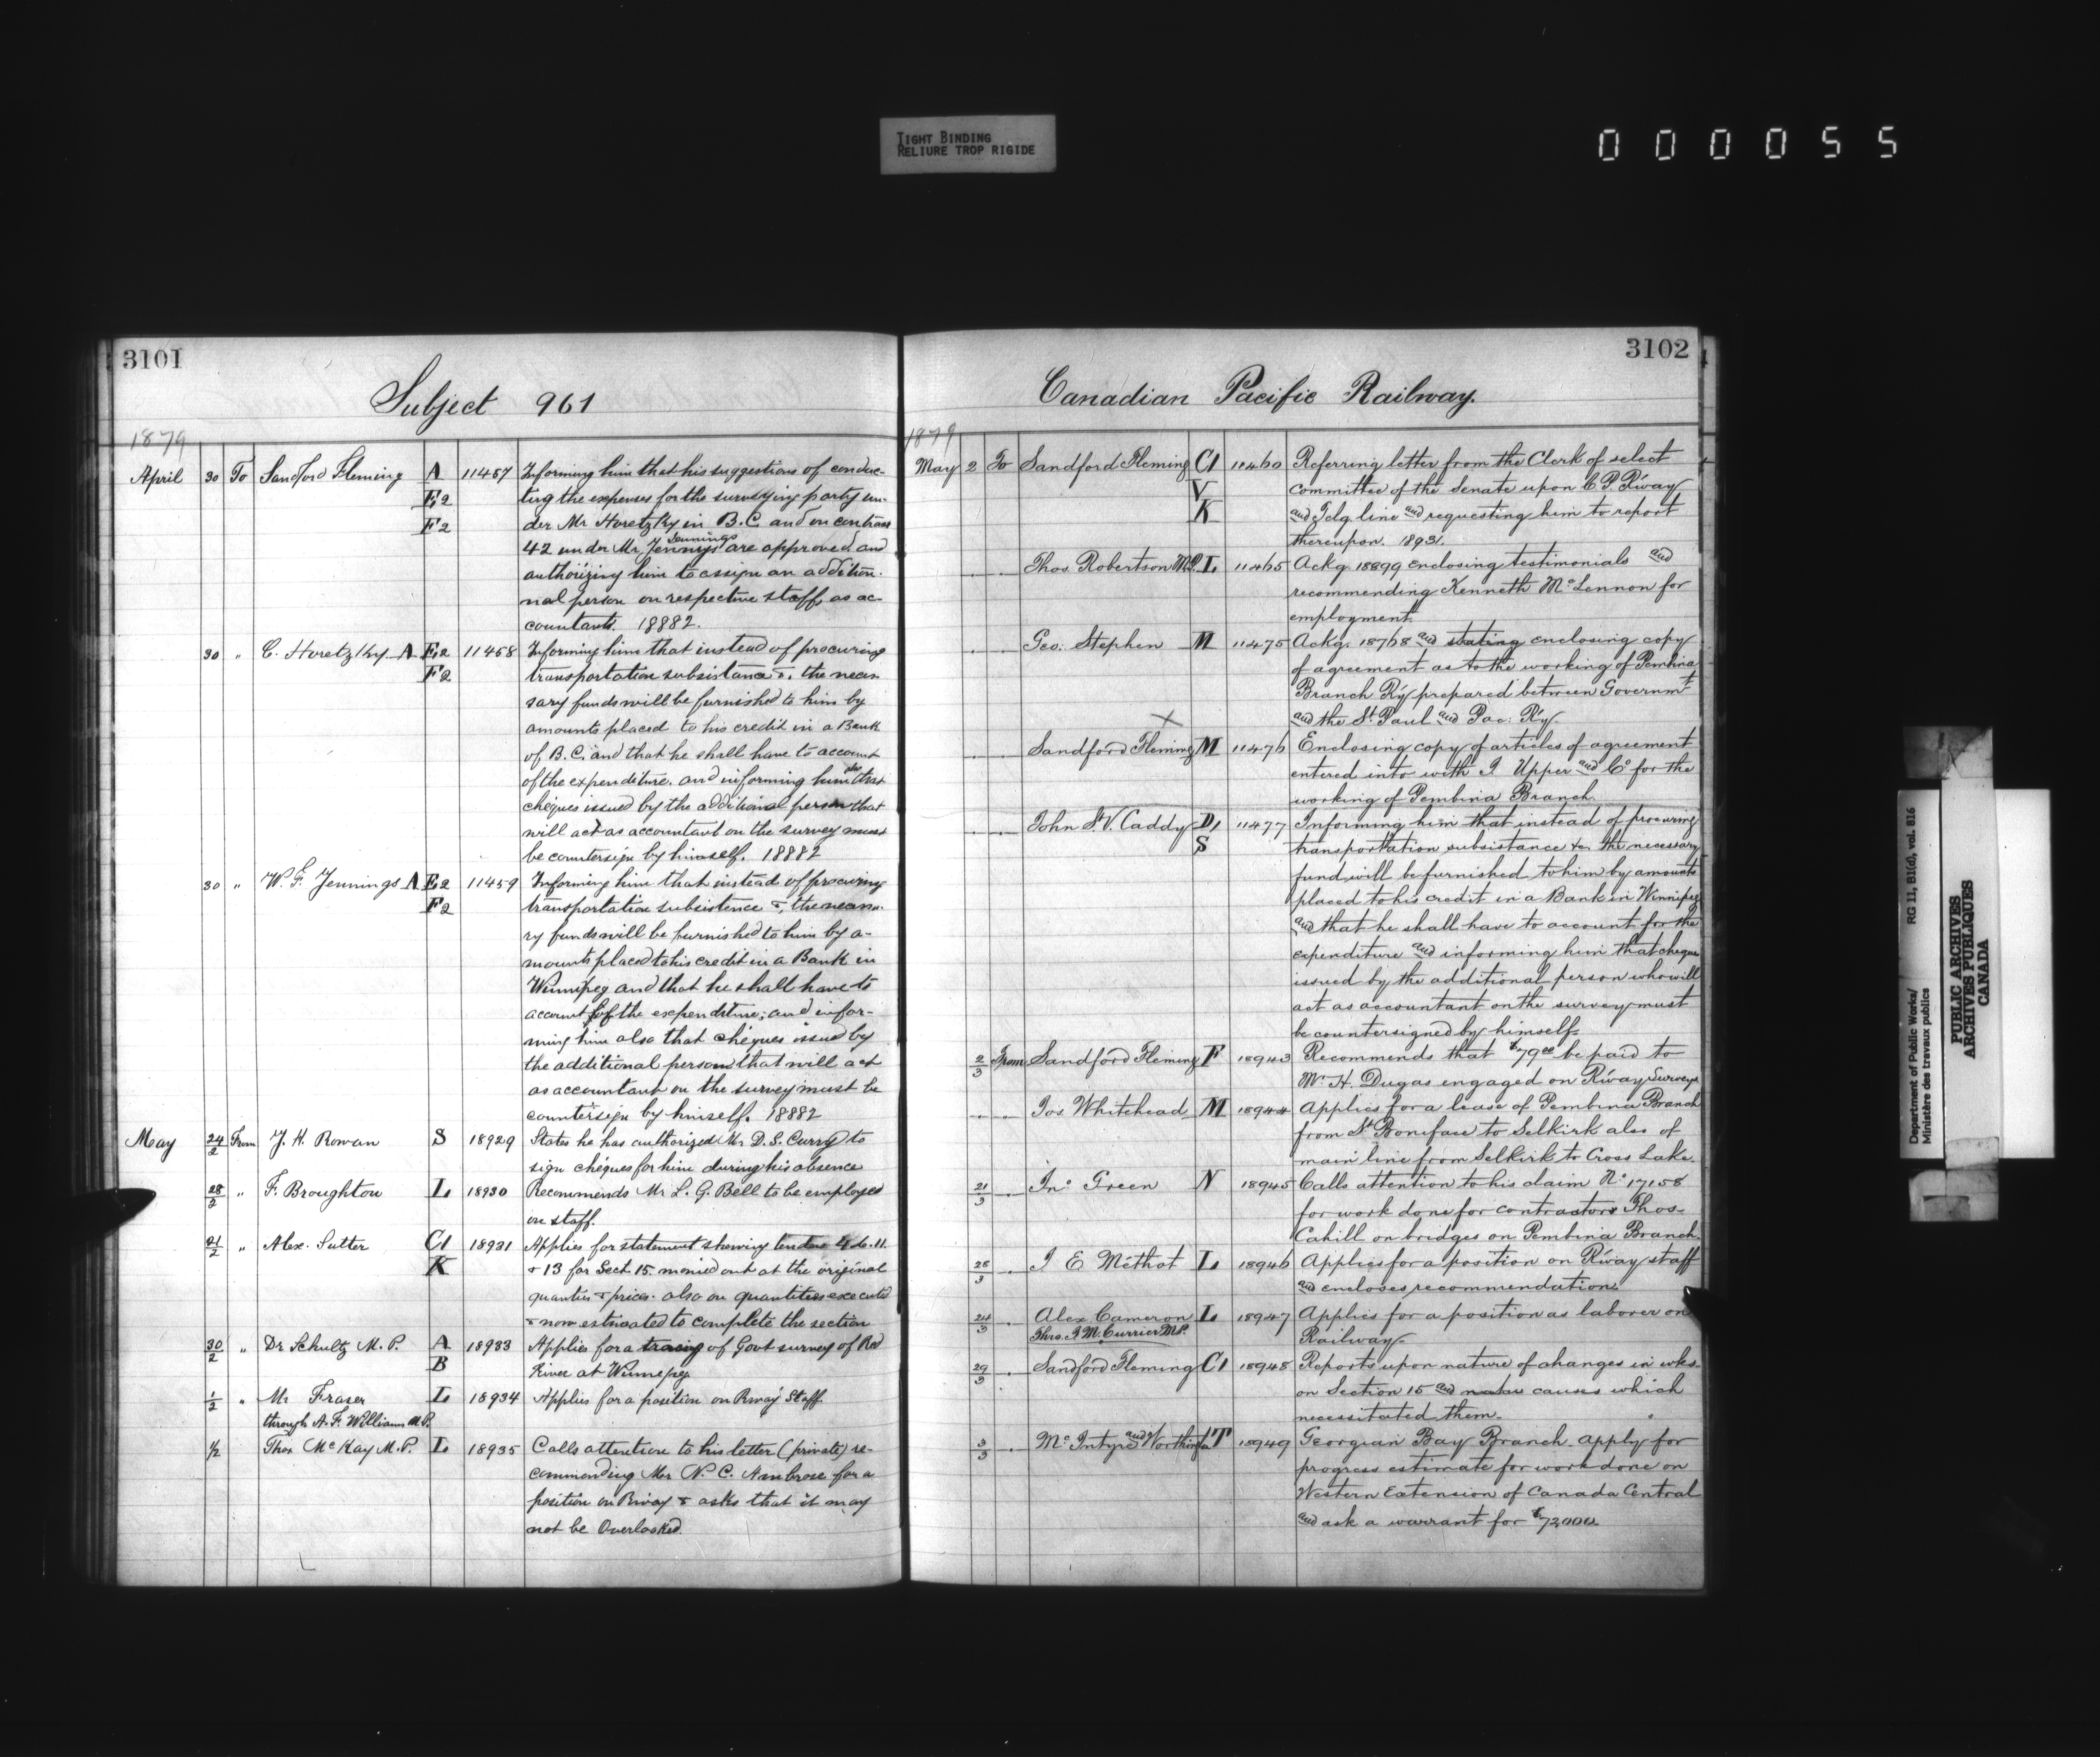 TIGHT BINDING
RELIURE TROP RIGIDE
000055
3101
Subject 961
1879
April 30 To Sandford Fleming A 11457 Informing him that his suggestions of conduc-
E2 ting the expenses for the surveying party un-
F2 der Mr Horetzky in B.C. and on contract
Jennings
42 under Mr Jennys are approved and
authorizing him to assign an addition-
nal person on respective staffs as ac-
countants. 18882.
30 " C. Horetzky A E2 11458 Informing him that instead of procuring
F2 transportation subsistance &, the neces
sary funds will be furnished to him by
amounts placed to his credit in a Bank
of B.C. and that he shall have to account
of the expenditure. and informing him also that
cheques issued by the additional person that
will act as accountant on the survey must
be countersign by himself. 18882
30 " W. F. Jennings A E2 11459 Informing him that instead of procuring
F2 transportation subsistence &, the necess.
ry funds will be furnished to him by a-
mounts placed to his credit in a Bank in
Winnipeg and that he shall have to
account of the expenditure; and infor-
ming him also that chéques issued by
the additional person that will act
as accountant on the survey must be
countersign by himself. 18882
May 24/2 From J. H. Rowan S 18929 States he has authorized Mr. D. S. Curry to
sign chéques for him during his absence
28/2 " F. Broughton L 18930 Recommends Mr L. G. Bell to be employed
on staff.
21/2 " Alex. Sutter C1 18931 Applies for statement shewing tenders 4 do. 11
K & 13 for Sect. 15. monied out at the original
quanties & prices. also on quantities executed
& now estimated to complete the section
30/2 " Dr Schultz M.P. A 18933 Applies for a tracing of Govt survey of Red
B River at Winnipeg
1/2 " Mr Fraser L 18934 Applies for a position on Rway Staff.
through A. F. Williams M.P.
1/2 Thos McKay M.P. L 18935 Calls attention to his letter (private) re-
commending Mr N. C. Ambrose for a
position on Rway & asks that it may
not be Overlooked.
3102
Canadian Pacific Railway.
1879
May 2 To Sandford Fleming C1 11460 Referring letter from the Clerk of select
V committee of the Senate upon C. P. R'way
K and Telg. line and requesting him to report
thereupon. 1893.
Thos Robertson M.P. L 11465 Ackg. 18899 enclosing testimonials and
recommending Kenneth McLennon for
employment.
Geo. Stephen M 11475 Ackg. 18768 and stating enclosing copy
of agreement as to the working of Pembina
Branch Ry prepared between Governmt
and the St. Paul and Pac. Ry.
X
Sandford Fleming M 11476 Enclosing copy of articles of agreement
entered into with J Upper and Co for the
working of Pembina Branch.
John St. V. Caddy D1 11477 Informing him that instead of procuring
S transportation subsistance &c the necessary
fund will be furnished to him by amounts
placed to his credit in a Bank in Winnipeg
and that he shall have to account for the
expenditure and informing him that cheques
issued by the additional person who will
act as accountant on the survey must
be countersigned by himself.
2/3 From Sandford Fleming F 18943 Recommends that $79 00 be paid to
Mr H. Dugas engaged on R'way Surveys
Jos Whitehead M 18944 Applies for a lease of Pembina Branch
from St Boniface to Selkirk also of
main line from Selkirk to Cross Lake.
21/3 Jno Green N 18945 Calls attention to his claim No 17158
for work done for contractors Thos-
Cahill on bridges on Pembina Branch.
28/3 J E Méthot L 18946 Applies for a position on R'way staff
and encloses recommendation
24/3 Alex Cameron L 18947 Applies for a position as laborer on
Thro. J M. Currier M.P. Railway
29/3 Sandford Fleming C1 18948 Reports upon nature of changes in wks-
on Section 15 and causes which
necessitated them.
3/3 McIntyre and Worthington T 18949 Georgian Bay Branch apply for
progress estimate for work done on
Western Extension of Canada Central
and ask a warrant for $72,000
Department of Public Works/ RG 11, B1(d), vol. 816
Ministère des travaux publics
PUBLIC ARCHIVES
ARCHIVES PUBLIQUES
CANADA